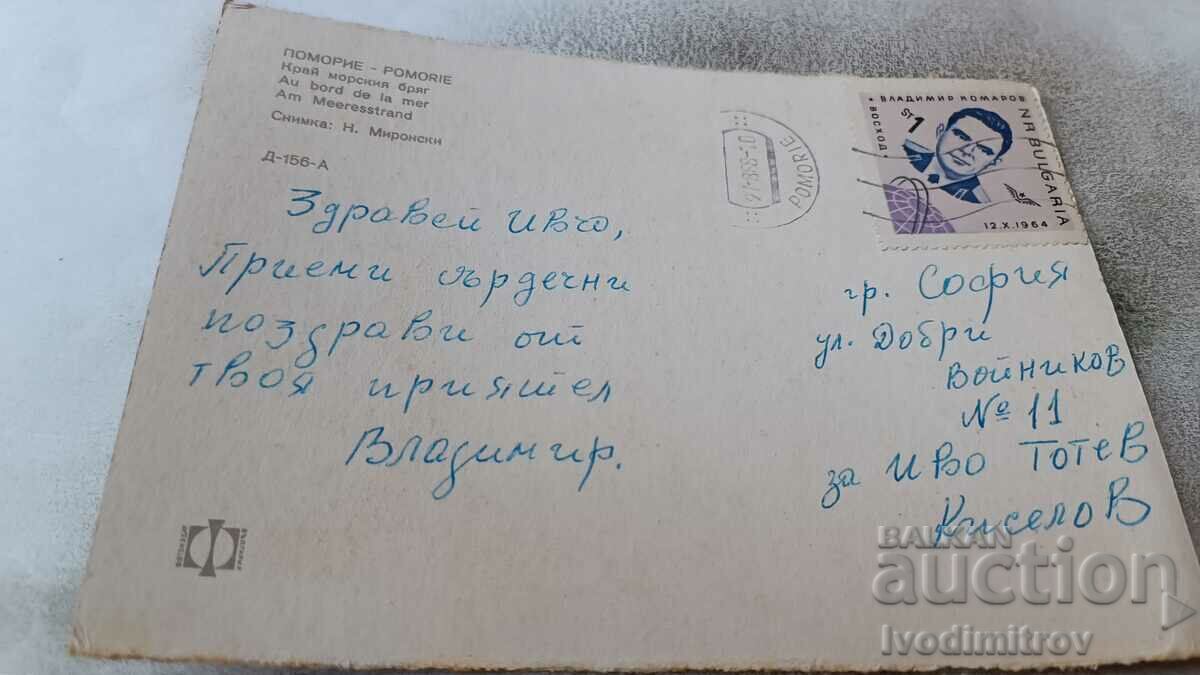 ПОМОРИЕ - POMORIE
Край морския бряг
Au bord de la mer
Am Meeresstrand
Снимка: Н. Миронски
Д-156-А
Здравей Ивчо,
Приеми сърдечни
поздрави от
твоя приятел
Владимир.
POMORIE
ВЛАДИМИР КОМАРОВ
ВОСХОД
1
NR BULGARIA
12.X.1964
гр. София
ул. Добри
Войников
№ 11
за Иво Тотев
BALKAN
auction
Ivodimitrov